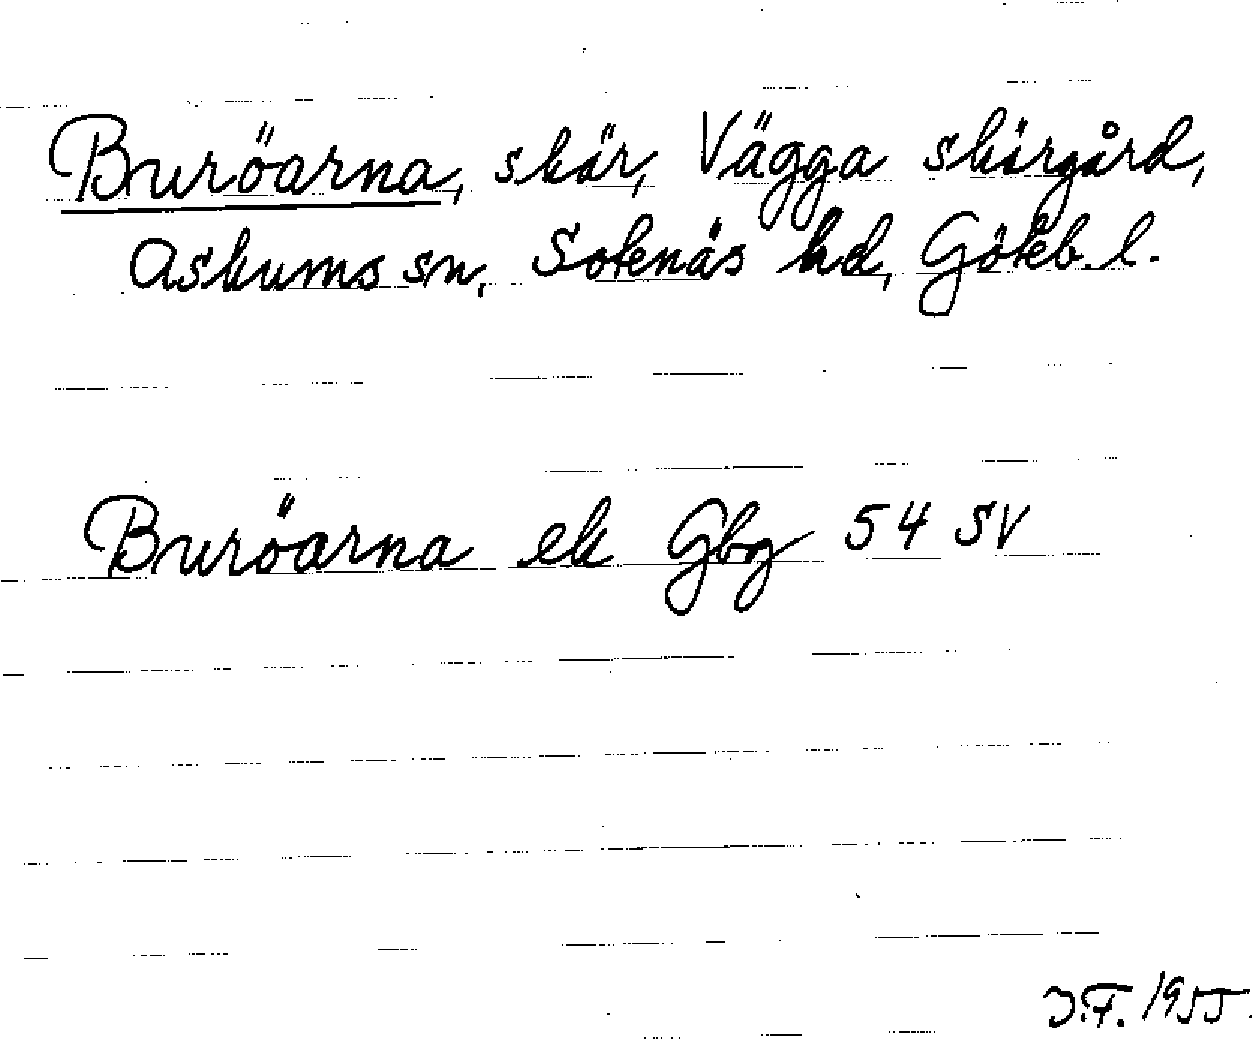 Buröarna, skär, Vägga skärgård,
Askums sn, Sotenäs hd, Göteb. l.
Buröarna ek Gbg 54 SV
J.F. 1955.